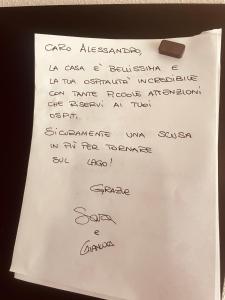 CARO ALESSANDRO,
LA CASA E' BELLISSIMA E
LA TUA OSPITALITA' INCREDIBILE
CON TANTE PICCOLE ATTENZIONI
CHE RISERVI AI TUOI
OSPITI.
SICURAMENTE UNA SCUSA
IN PIÙ PER TORNARE
SUL LAGO!
GRAZIE
e
GIANLUCA